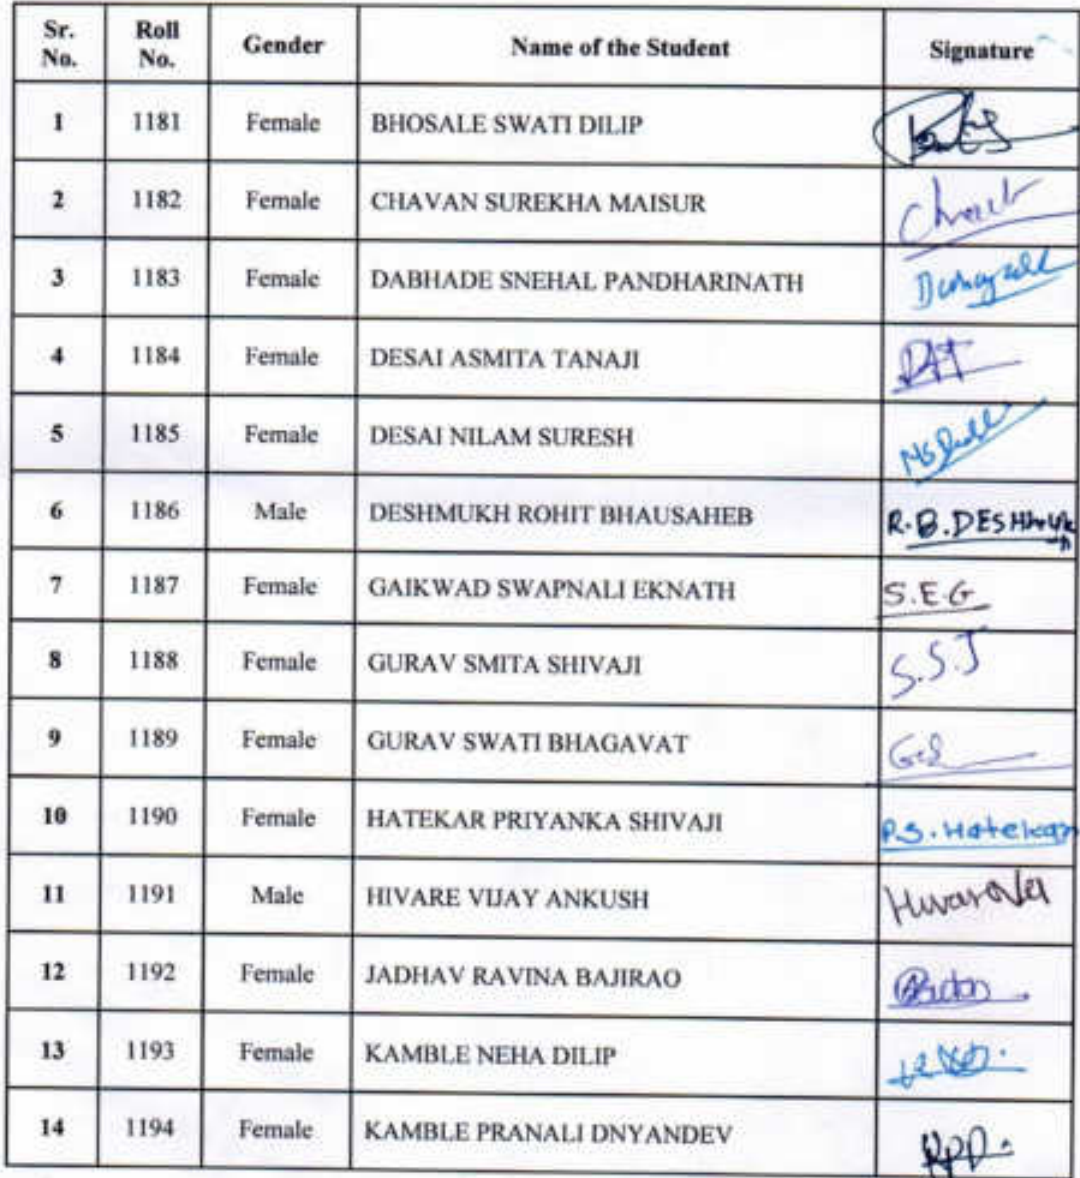 Sr. No. Roll No. Gender Name of the Student Signature
1 1181 Female BHOSALE SWATI DILIP
2 1182 Female CHAVAN SUREKHA MAISUR
3 1183 Female DABHADE SNEHAL PANDHARINATH
4 1184 Female DESAI ASMITA TANAJI DAT
5 1185 Female DESAI NILAM SURESH
6 1186 Male DESHMUKH ROHIT BHAUSAHEB R.B.DESHMUKH
7 1187 Female GAIKWAD SWAPNALI EKNATH S.E.G
8 1188 Female GURAV SMITA SHIVAJI S.S.J
9 1189 Female GURAV SWATI BHAGAVAT
10 1190 Female HATEKAR PRIYANKA SHIVAJI P.S.Hatekar
11 1191 Male HIVARE VIJAY ANKUSH
12 1192 Female JADHAV RAVINA BAJIRAO
13 1193 Female KAMBLE NEHA DILIP
14 1194 Female KAMBLE PRANALI DNYANDEV